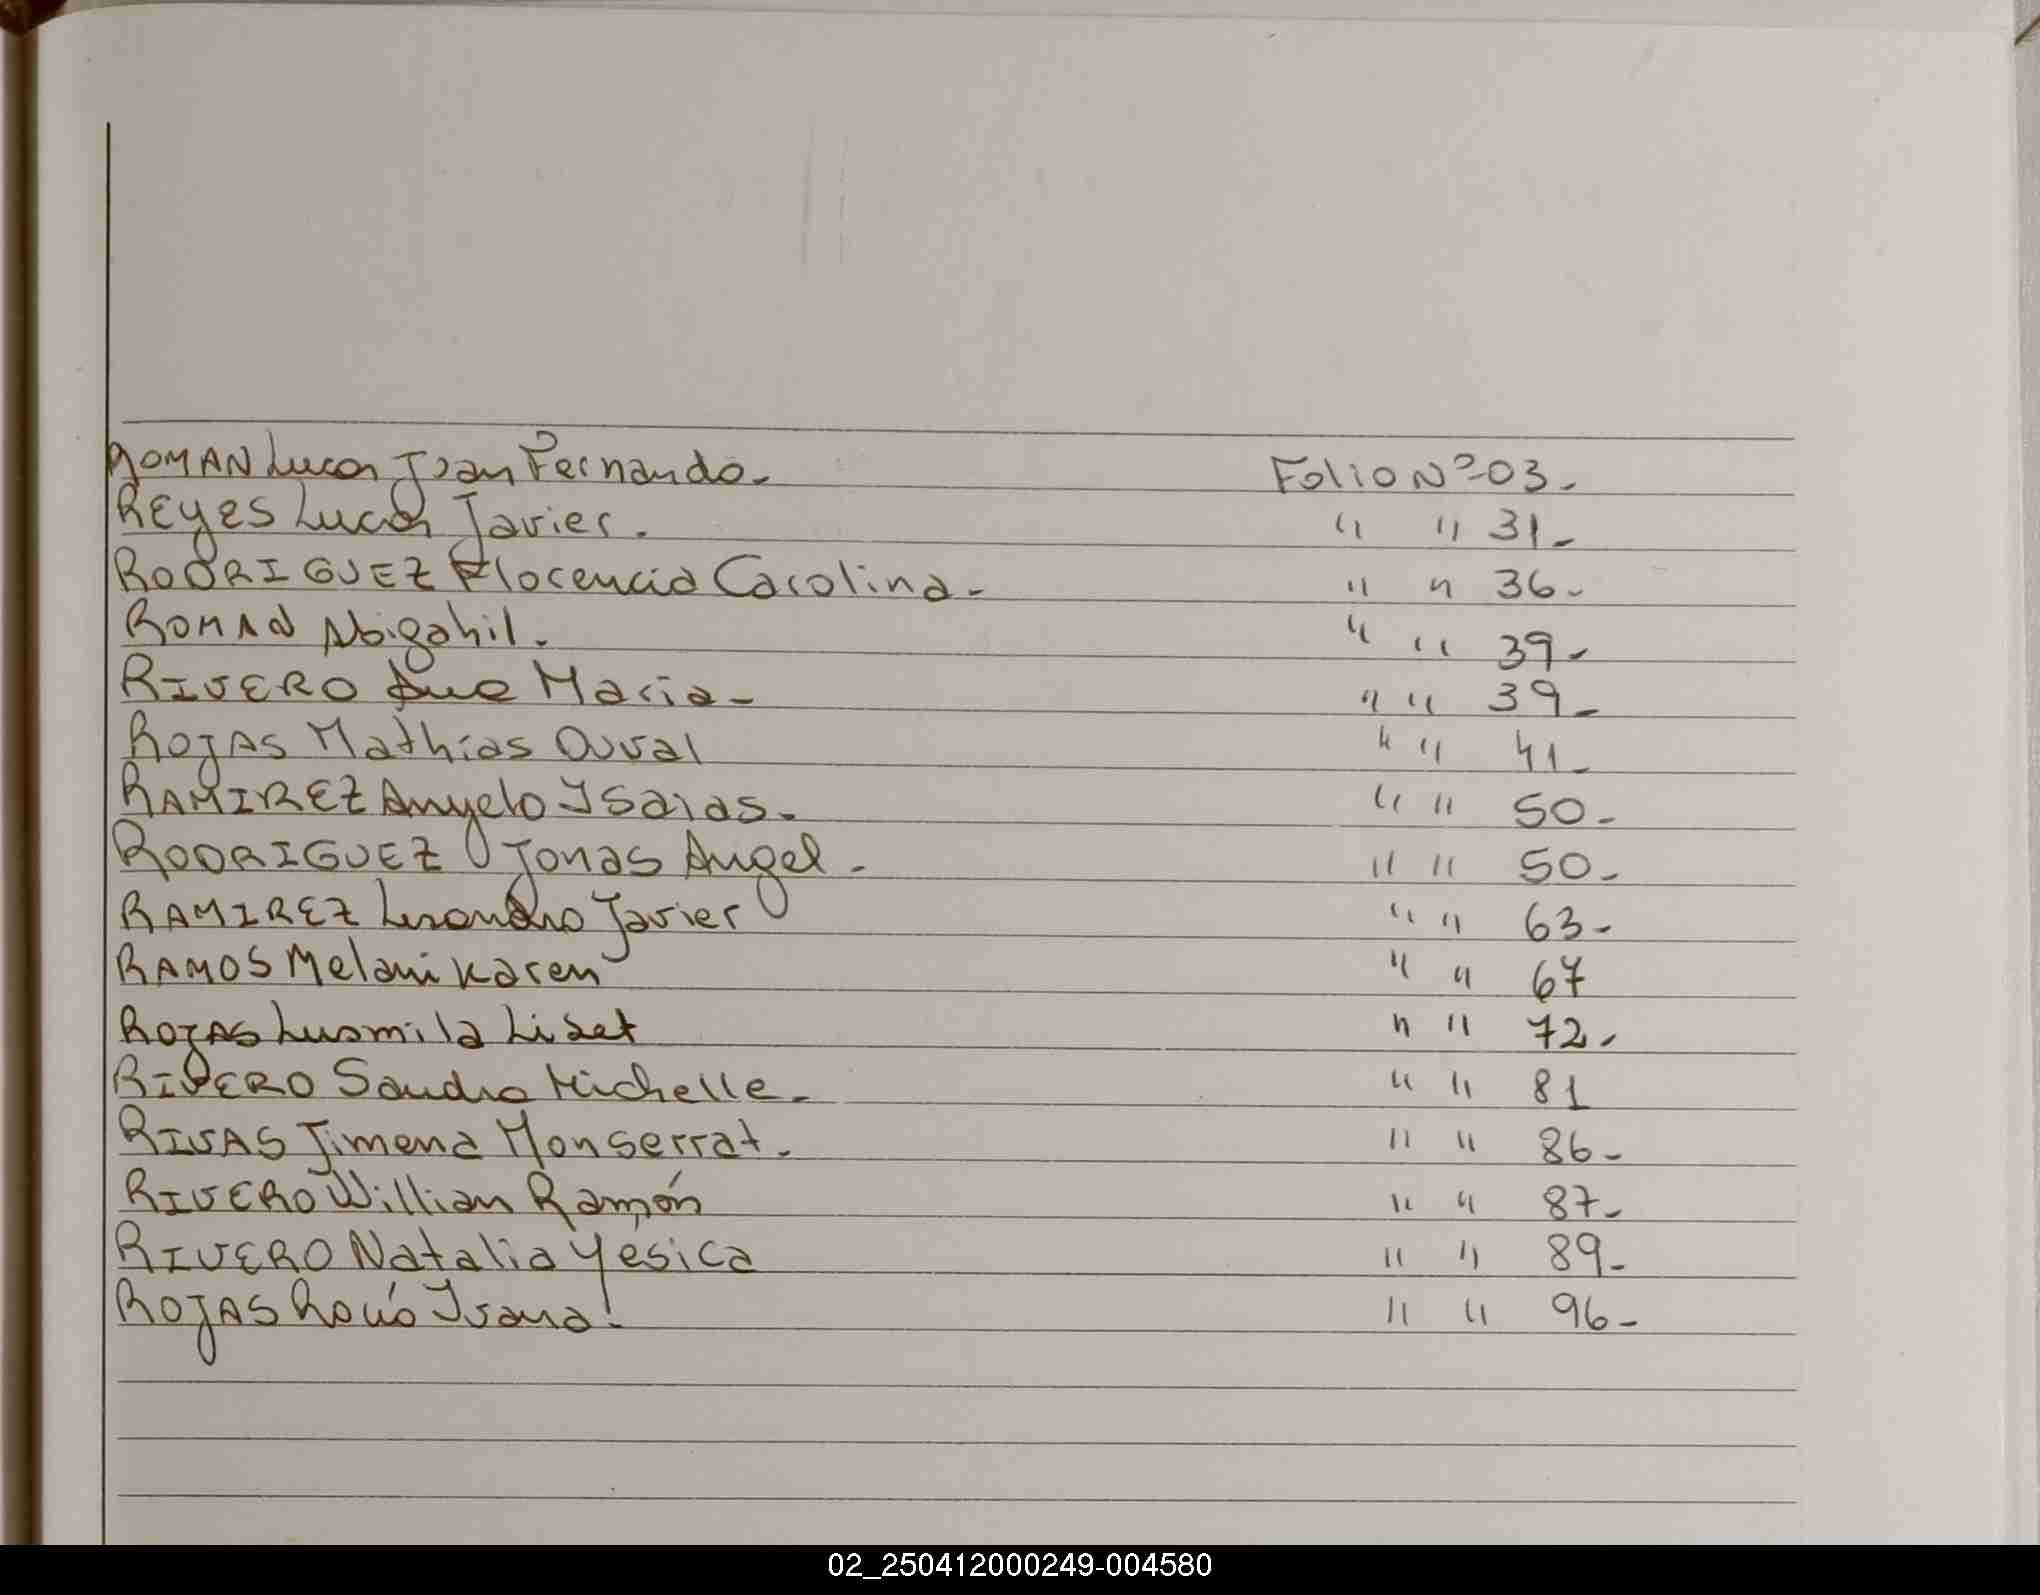 ROMAN Lucas Juan Fernando. Folio Nº 03.
REYES Lucas Javier. " " 31.
RODRIGUEZ Florencia Carolina. " " 36.
ROMAN Abigahil. " " 39.
RIVERO Ana Maria. " " 39.
ROJAS Mathias Duval " " 41.
RAMIREZ Anyelo Isaias. " " 50.
RODRIGUEZ Jonas Angel. " " 50.
RAMIREZ Lisandro Javier " " 63.
RAMOS Melani Karen " " 67
ROJAS Lusmila Liset " " 72.
RIVERO Sandra Michelle. " " 81
RIVAS Jimena Monserrat. " " 86.
RIVERO Willian Ramón " " 87.
RIVERO Natalia Yesica " " 89.
ROJAS Rocío Ivana. " " 96.
02_250412000249-004580